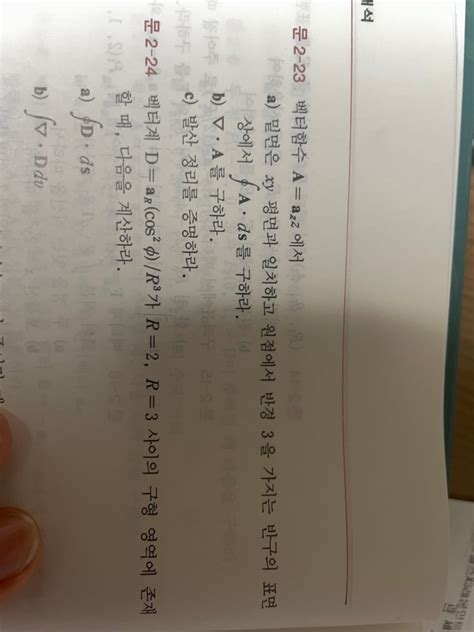 해석
문 2-23 벡터함수 A = a_z z 에서
a) 밑면은 xy 평면과 일치하고 원점에서 반경 3을 가지는 반구의 표면
상에서 ∮A · ds를 구하라.
b) ∇ · A를 구하라.
c) 발산 정리를 증명하라.
문 2-24 벡터계 D = a_R (cos² ϕ) /R³가 R = 2, R = 3 사이의 구형 영역에 존재
할 때, 다음을 계산하라.
a) ∮D · ds
b) ∫∇ · Ddv